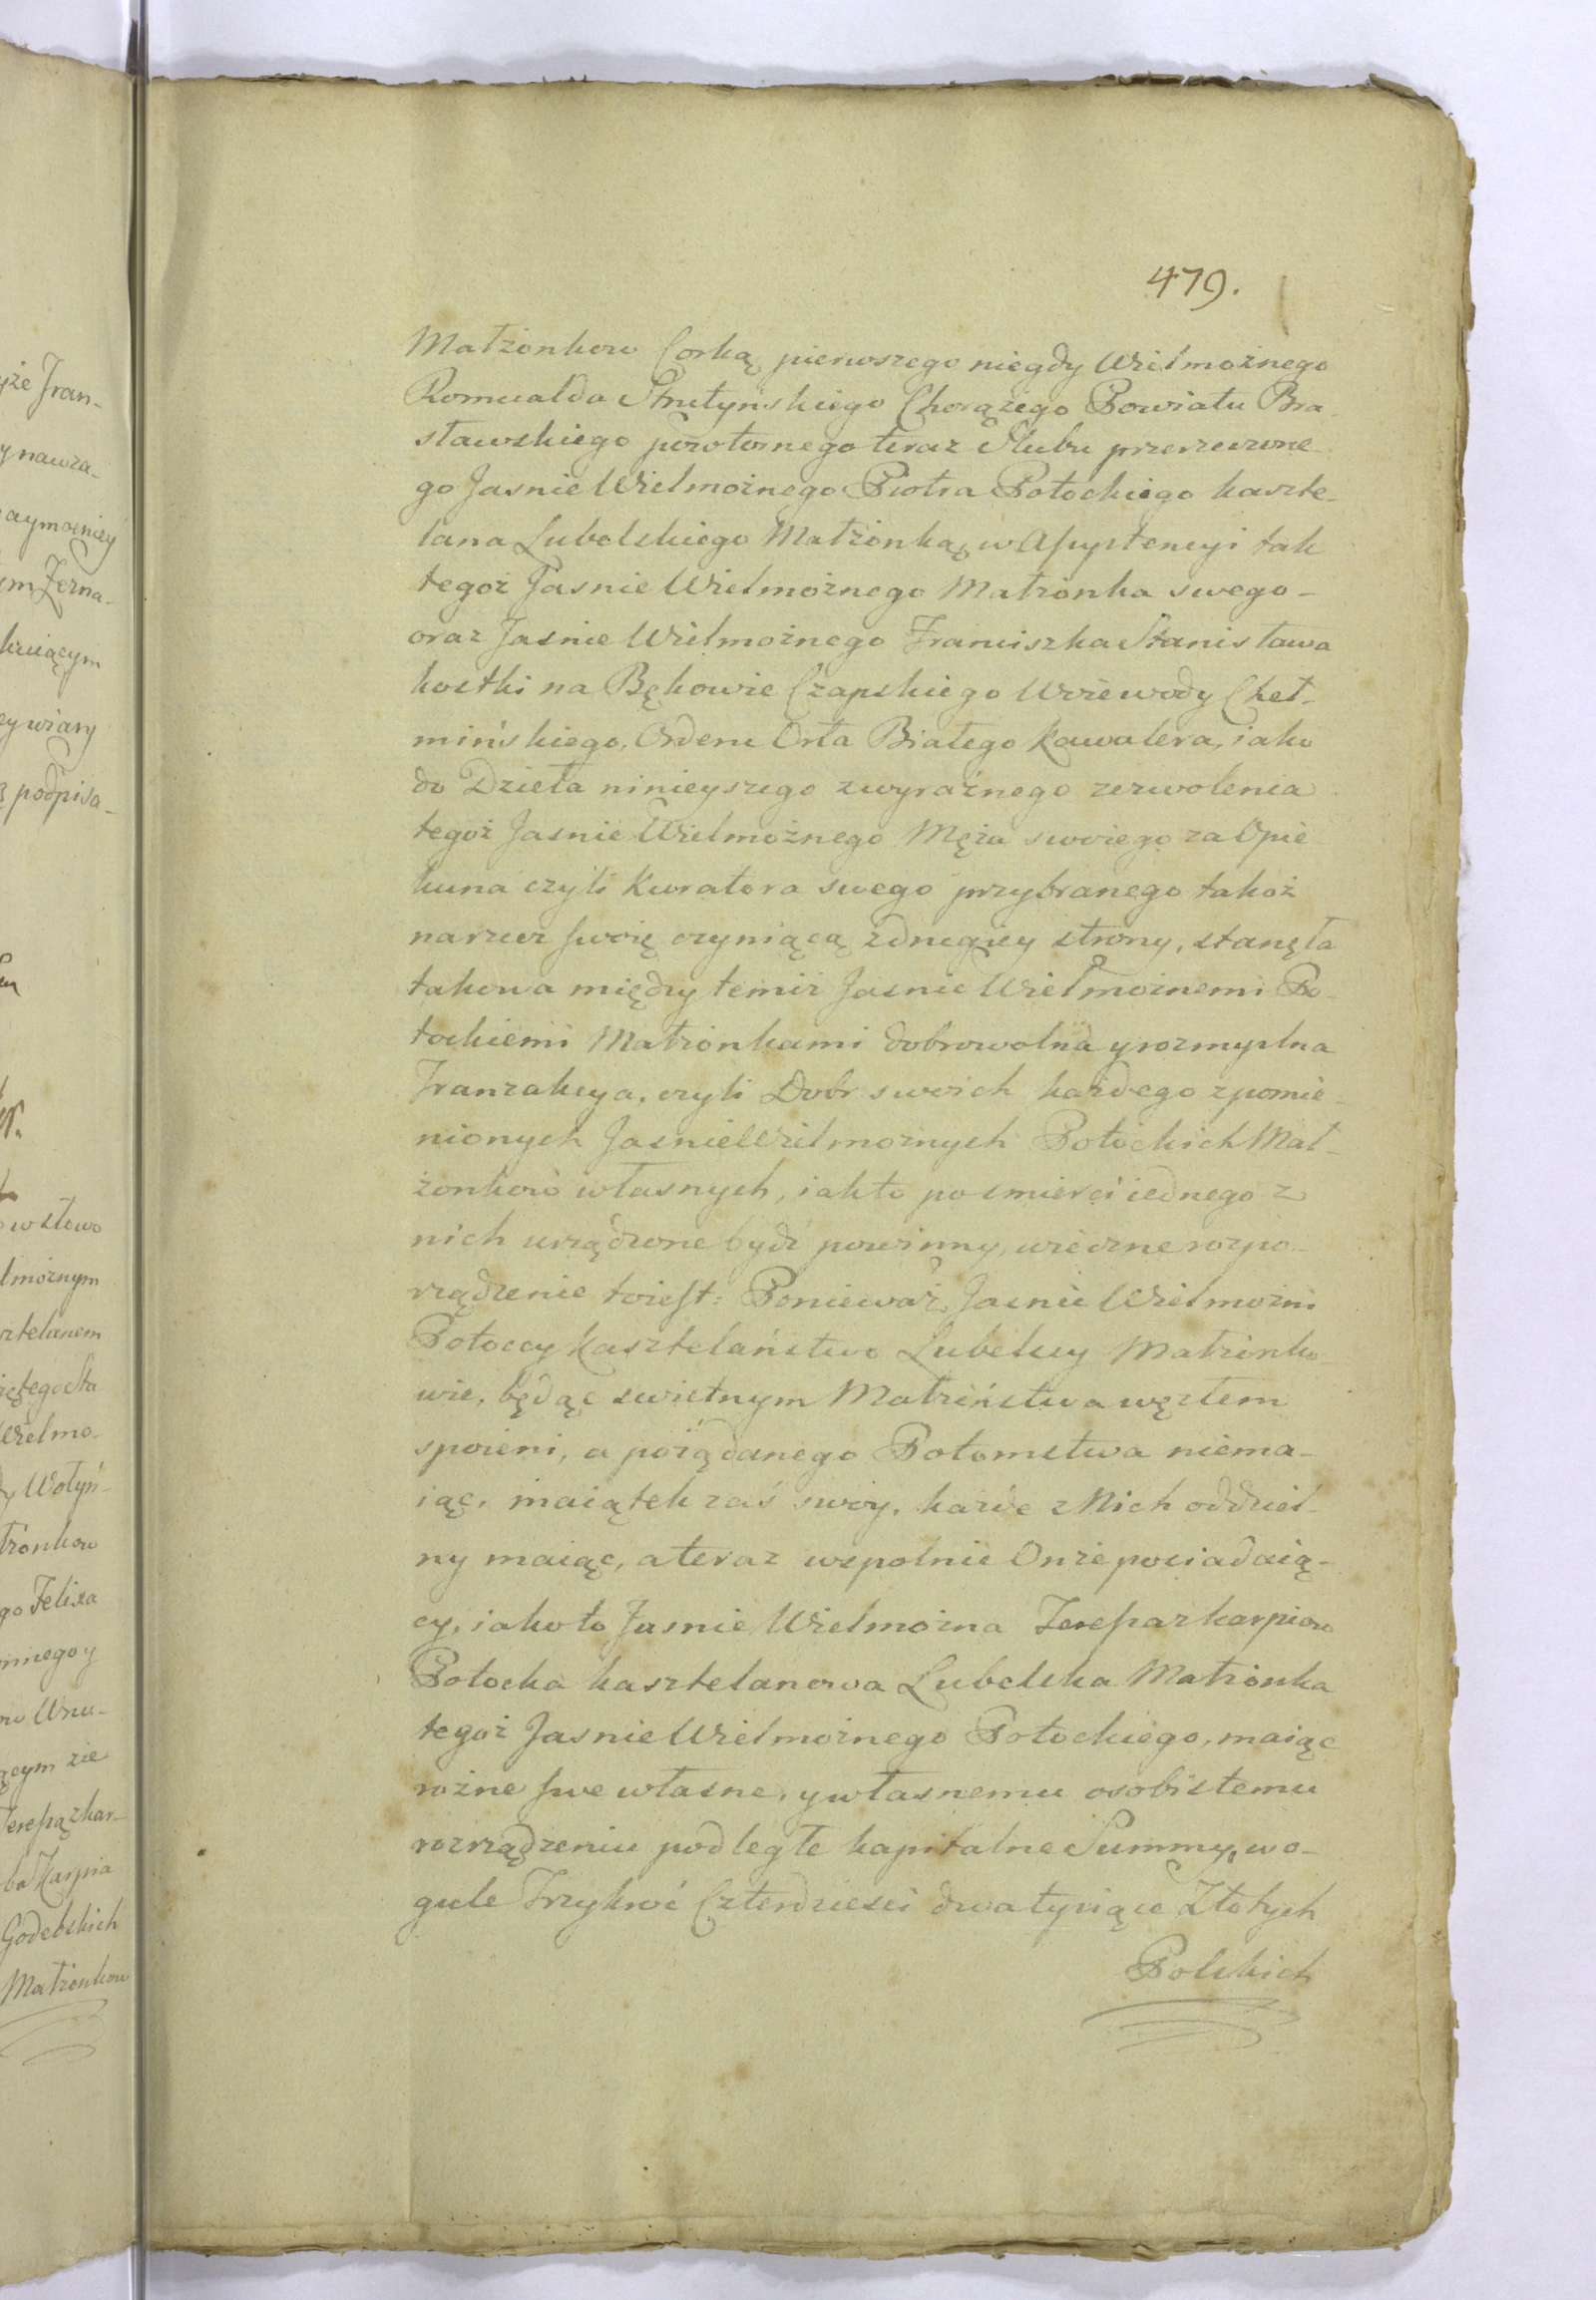 479.
Małżonkow Corką pierwszego niegdy Wielmożnego
Romualda Strutynskiego Chorążego Powiatu Bra-
sławskiego powtornego teraz Slubu przerzeczone-
go Jasnie Wielmożnego Piotra Potockiego kaszte-
lana Lubelskiego Małżonką, w Assystencyi tak
tegoż Jasnie Wielmożnego Małżonka swego-
oraz Jasnie Wielmożnego Franciszka Stanisława
kostki na Bękowie Czapskiego Woiewody Cheł-
mińskiego, Orderu Orła Białego kawalera, iako
do Dzieła ninieyszego z wyraźnego zezwolenia
tegoż Jasnie Wielmożnego Męża swoiego za Opie
kuna czyli kuratora swego przybranego takoż
na rzecz swoię czyniącą z drugiey strony, stanęła
takowa między temiż Jasnie Wielmożnemi Po-
tockiemi Małżonkami dobrowolna y rozmyslna
Tranzakcya, czyli Dobr swoich każdego zpomie-
nionych Jasnie Wielmożnych Potockich Mał-
żonkow własnych, iak to po smierci iednego z
nich urządzone bydź powinny, wieczne rozpo-
rządzenie toiest: Ponieważ Jasnie Wielmożni
Potoccy kasztelaństwo Lubelscy Małżonko
wie, będąc swietnym Małżeństwa węzłem
spoieni, a pożądanego Potomstwa niema-
iąc, maiątek zaś swoy, każde z Nich oddziel-
ny maiąc, a teraz wspolnie Onże posiadaią-
cy, iako to Jasnie Wielmożna Teressa z karpiow
Potocka kasztelanowa Lubelska Małżonka
tegoż Jasnie Wielmożnego Potockiego, maiąc
rożne swe własne, y własnemu osobistemu
rozrządzeniu podległe kapitalne Summy, wo-
gule Trzykroć Czterdziesci dwa tysiące Złotych
Polskich
yże Fran-
y nawza-
aymocniey
kuiącym
ey wiary
podpisa-
w słowo
lmożnym
sztelanem
iętego Sta
Wielmo-
y Wołyń-
łżonkow
go Felixa
nnego y
Wnu-
ącym zie
Teressą z kar-
ba karpia
Godebskich
Małżonkow